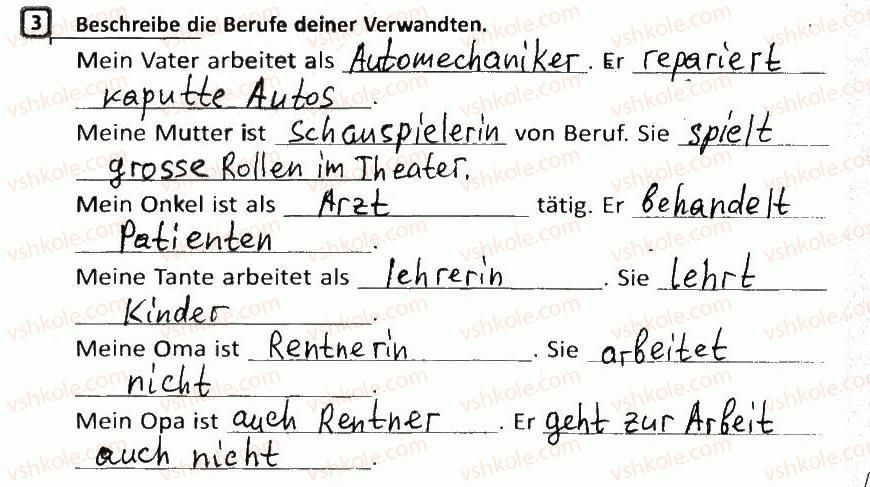 3 Beschreibe die Berufe deiner Verwandten.
Mein Vater arbeitet als Automechaniker. Er repariert
kaputte Autos.
Meine Mutter ist Schauspielerin von Beruf. Sie spielt
grosse Rollen im Theater.
Mein Onkel ist als Arzt tätig. Er behandelt
Patienten.
Meine Tante arbeitet als lehrerin. Sie lehrt
Kinder.
Meine Oma ist Rentnerin. Sie arbeitet
nicht.
Mein Opa ist auch Rentner. Er geht zur Arbeit
auch nicht.
vshkole.com